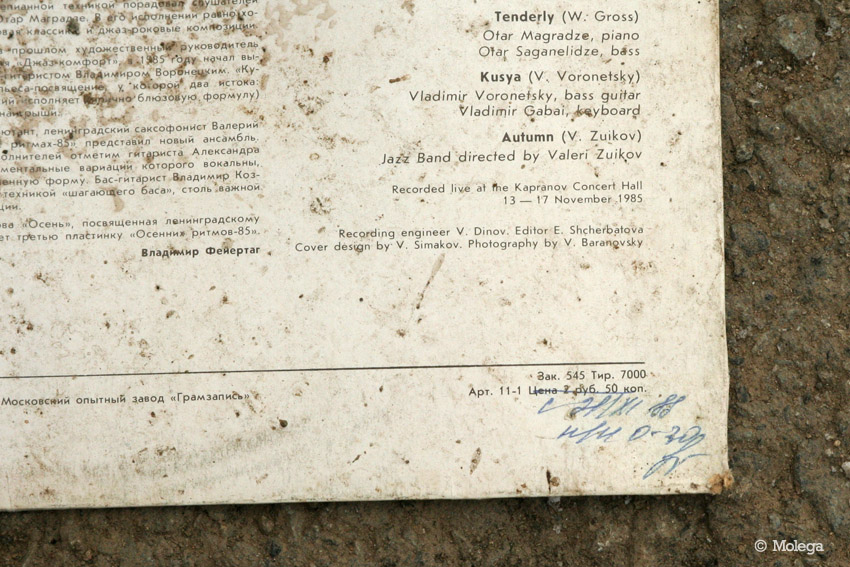 епианной техникой порадовал слушателей
Отар Маградзе. В его исполнении
классика и джаз-роковые композиции
прошлом художественный руководитель
«Джаз-комфорт». в 1985 году начал вы-
гитаристом Владимиром Воронецким. «Ку-
посвящение, у которой два истока:
блюзовую формулу)
ленинградский саксофонист Валерий
ритмах-85» представил новый ансамбль.
полнителей отметим гитариста Александра
ментальные вариации которого вокальны,
форму. Бас-гитарист Владимир Коз-
техникой «шагающего баса», столь важной
ции.
ова «Осень», посвященная ленинградскому
ет третью пластинку «Осенних ритмов-85».
Владимир Фейертаг
Tenderly (W. Gross)
Otar Magradze, piano
Otar Saganelidze, bass
Kusya (V. Voronetsky)
Vladimir Voronetsky, bass guitar
Vladimir Gabai, keyboard
Autumn (V. Zuikov)
Jazz Band directed by Valeri Zuikov
Recorded live at the Kapranov Concert Hall
13 — 17 November 1985
Recording engineer V. Dinov. Editor E. Shcherbatova
Cover design by V. Simakov. Photography by V. Baranovsky
Московский опытный завод «Грамзапись»
Зак. 545 Тир. 7000
Арт. 11-1 Цена 2 руб. 50 коп.
© Molega